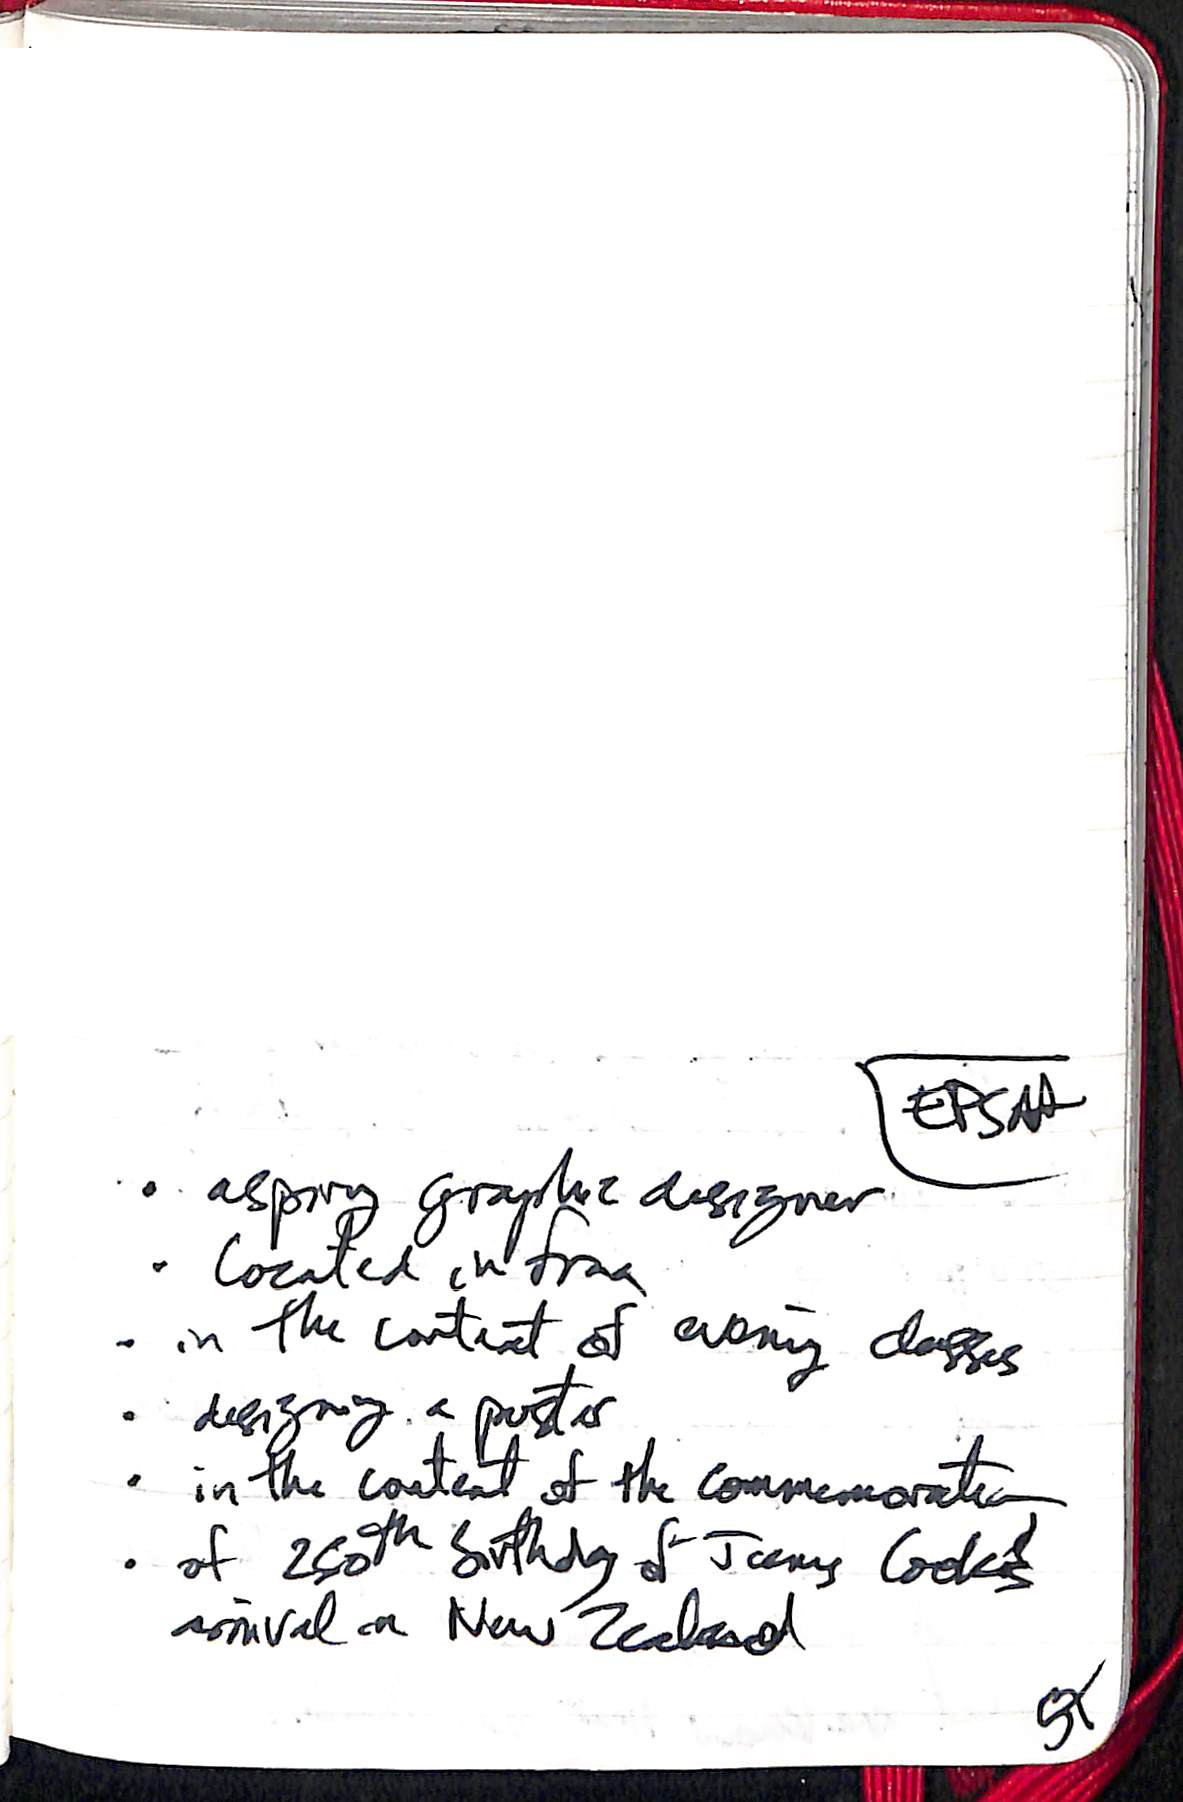 EPSAA
• aspiring graphic designer
• located in
• in the context of evening classes
• designing a poster
• in the context of the commemoration
• of 250th birthday of James Cook's
arrival in New Zealand